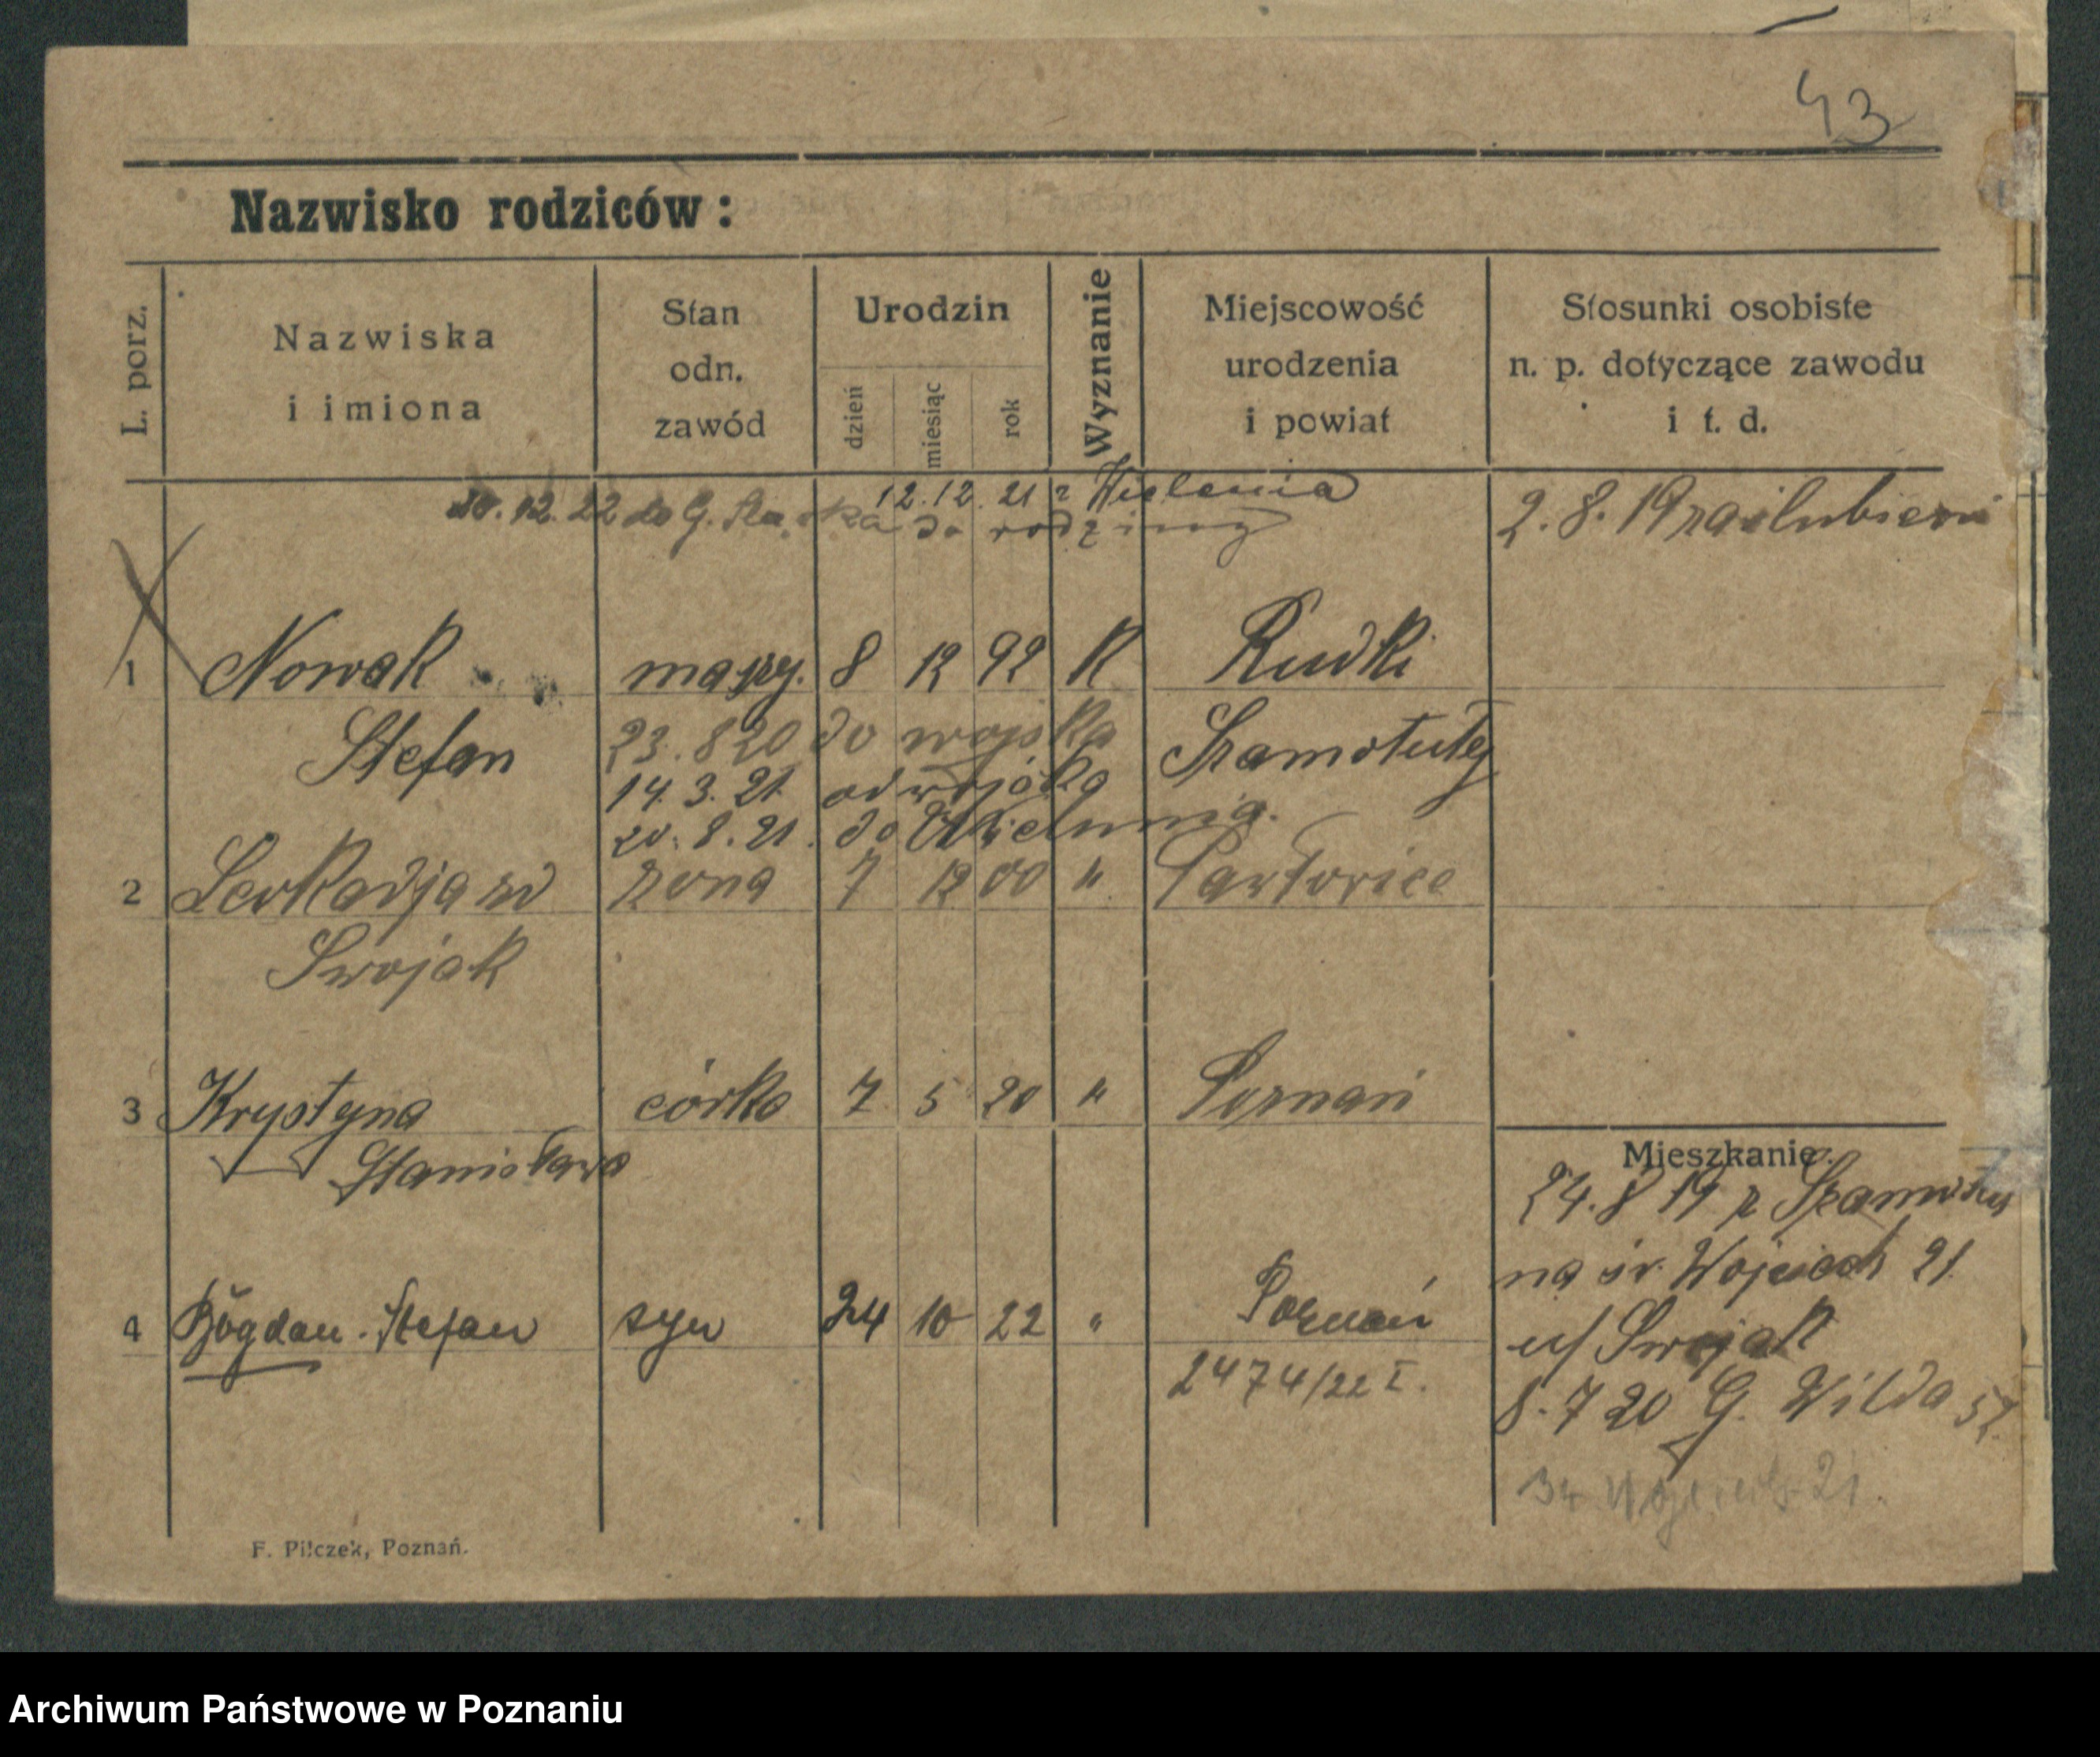 43
Nazwisko rodziców :
L. porz.
Nazwiska
i imiona
Stan
odn.
zawód
Urodzin
dzień
miesiąc
rok
Wyznanie
Miejscowość
urodzenia
i powiat
Stosunki osobiste
n. p. dotyczące zawodu
i t. d.
12.12.21 z Wielenia
12.22 do G. do rodziny
2.8.19 zaślubieni
1 Nowak masz. 8 12 92 K Rudki
Stefan 23.8 20 do wojska Szamotuły
14.3.21. od wojska
20.8.21. do Wielunia.
2 Leokadja zd żona 7 12 00 "
Swojak
3 Krystyna córka 7 5 20 " Poznań
Stanisława
Mieszkanie:
24.8 19 z Szamotuły
na św. Wojciech 21.
u/ Swojak
8.7 20 G. Wilda 57.
Wojciech 21.
4 Bogdan. Stefan syn 24 10 22 " Poznań
2474/22 I.
F. Pilczek, Poznań.
Archiwum Państwowe w Poznaniu